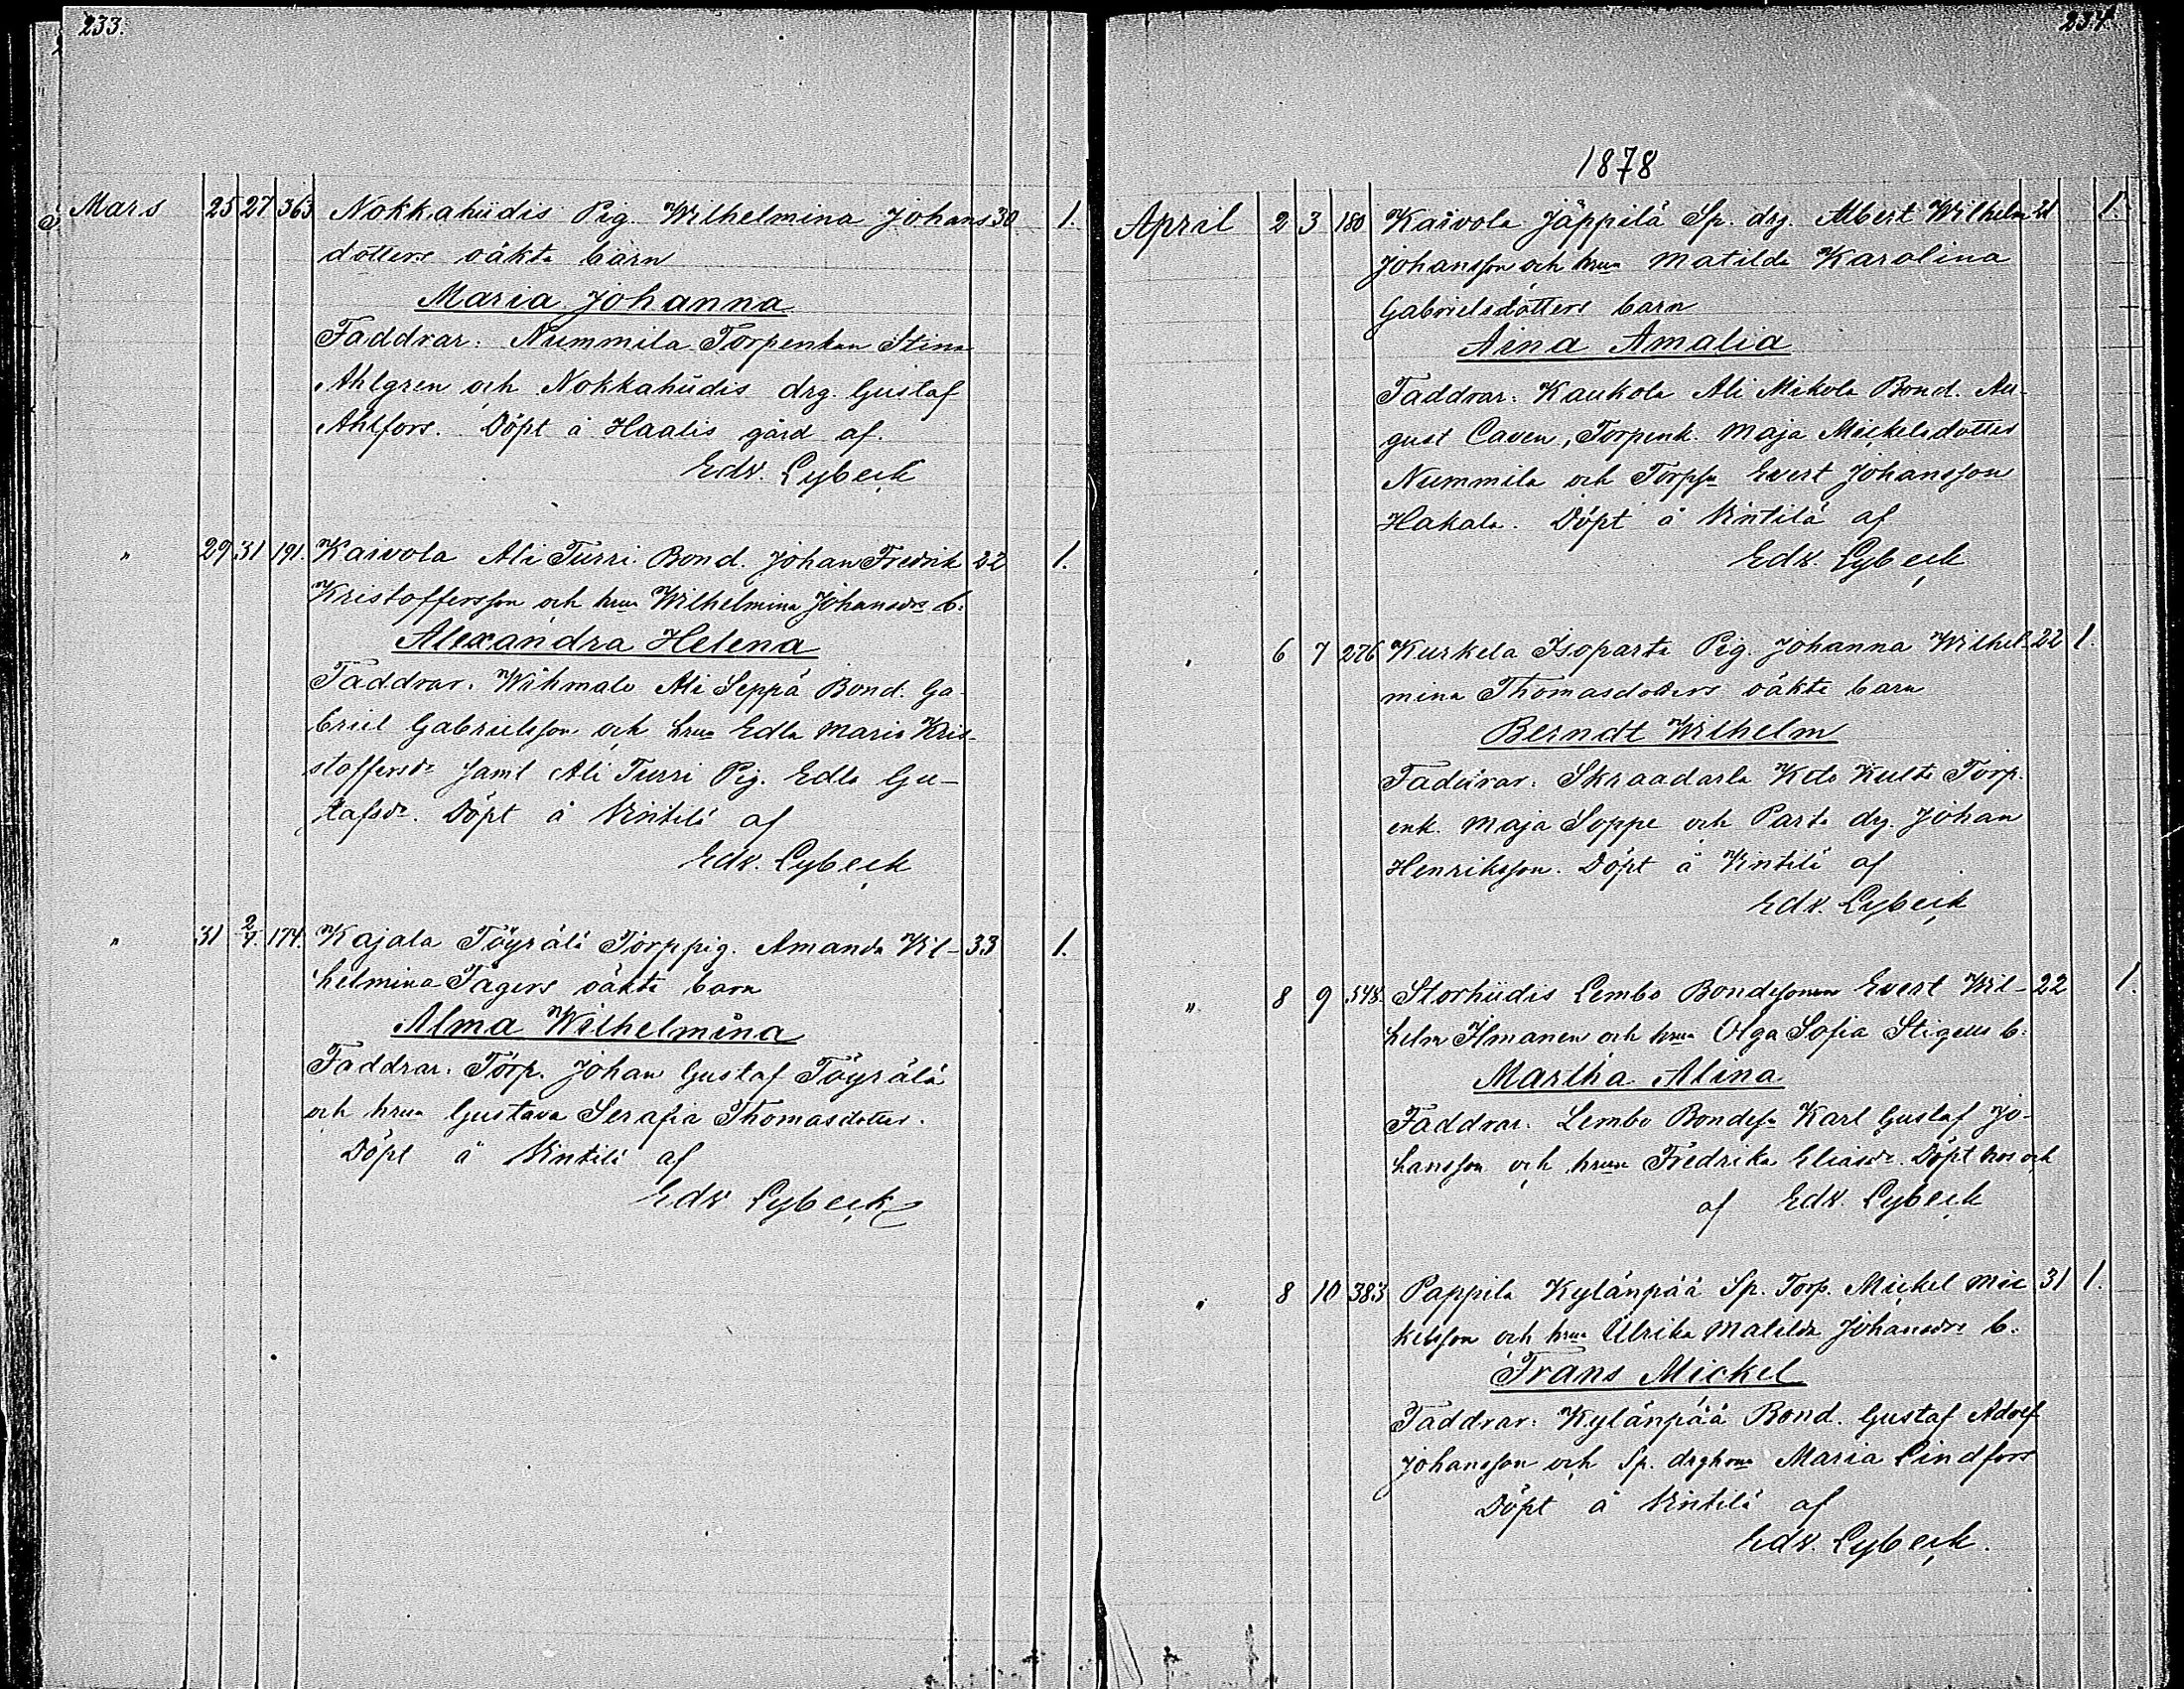 233.
Mars 25 27 363 Nokkahiidis Pig. Wilhelmina Johans 30 1.
dotters oäkta barn
Maria Johanna
Faddrar: Nummila Torpenkan Stina
Ahlgren och Nokkahiidis drg. Gustaf
Ahlfors. Döpt å Haalis gård af
Edv. Lybeck
" 29 31 191. Kaivola Ali Turri Bond. Johan Fredrik 22 1.
Kristoffersson och hrun Wilhelmina Johansdr b.
Alexandra Helena
Faddrar. Wihmalo Ali Seppä Bond. Ga-
briel Gabrielsson och hrun Edla Maria Kris-
stoffersdr samt Ali Turri Pig. Edla Gu-
stafsdr. Döpt å Vintilä af
Edv. Lybeck
" 31 2/4. 174. Kajala Töyrälä Torppig. Amanda Vil- 33 1.
helmina Fagers oäkta barn
Alma Wilhelmina
Faddrar. Torp. Johan Gustaf Töyrälä
och hrun Gustava Serafia Thomasdotter.
Döpt å Vintilä af
Edv Lybeck
234.
1878
April 2 3 180 Kaivola Jäppilä Sp. drg. Albert Wilhelm 21 1.
Johansson och hrun Matilda Karolina
Gabrielsdotters barn
Aina Amalia
Faddrar: Kaukola Ali Mikola Bond. Au-
gust Caven, Torpenk. Maja Mickelsdotter
Nummila och Torpsn Evert Johansson
Hakala. Döpt å Vintilä af
Edv. Lybeck
" 6 7 276 Kurkela Isoparta Pig. Johanna Wilhel- 22 1.
mina Thomasdotters oäkta barn
Berndt Wilhelm
Faddrar. Skraadarla Keto Kulta Torp.
enk. Maja Soppe och Parta drg. Johan
Henriksson. Döpt å Vintilä af
Edv. Lybeck
" 8 9 548. Storhiidis Lembo Bondesonen Evert Wil- 22 1.
helm Ilmanen och hrun Olga Sofia Stigells b.
Martha Alina
Faddrar. Lembo Bondesn Karl Gustaf Jo-
hansson och hrun Fredrika Eliasdr. Döpt hos och
af Edv. Lybeck
" 8 10 383 Pappila Kylänpää Sp. Torp. Mickel Mic 31 1.
kelsson och hrun Ulrika Matilda Johansdrs b.
Frans Mickel
Faddrar: Kylänpää Bond. Gustaf Adolf
Johansson och Sp. drghrun Maria Lindfors
Döpt å Vintilä af
Edv. Lybeck.